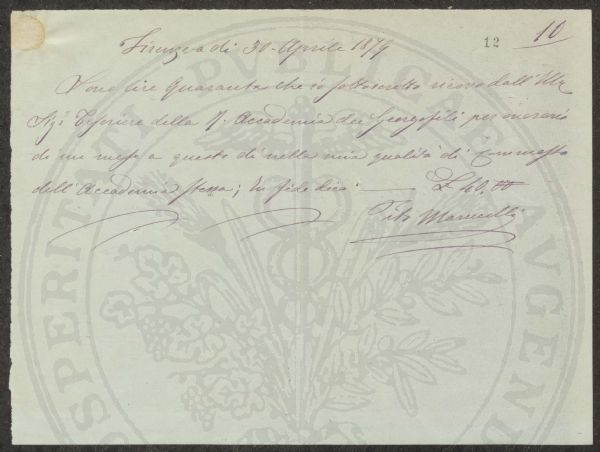 12 10
Firenze a dì 30. Aprile 1879
Sono lire Quaranta che io sottoscritto ricevo dall' Ill.
Sig. Tesoriere della R. Accademia dei Georgofili per onorario
di un mese a questo dì nella mia qualità di Commesso
dell' Accademia stessa; In fede dico: L 40.00
Marucelli
PROSPERITATI PUBLICAE AUGENDAE